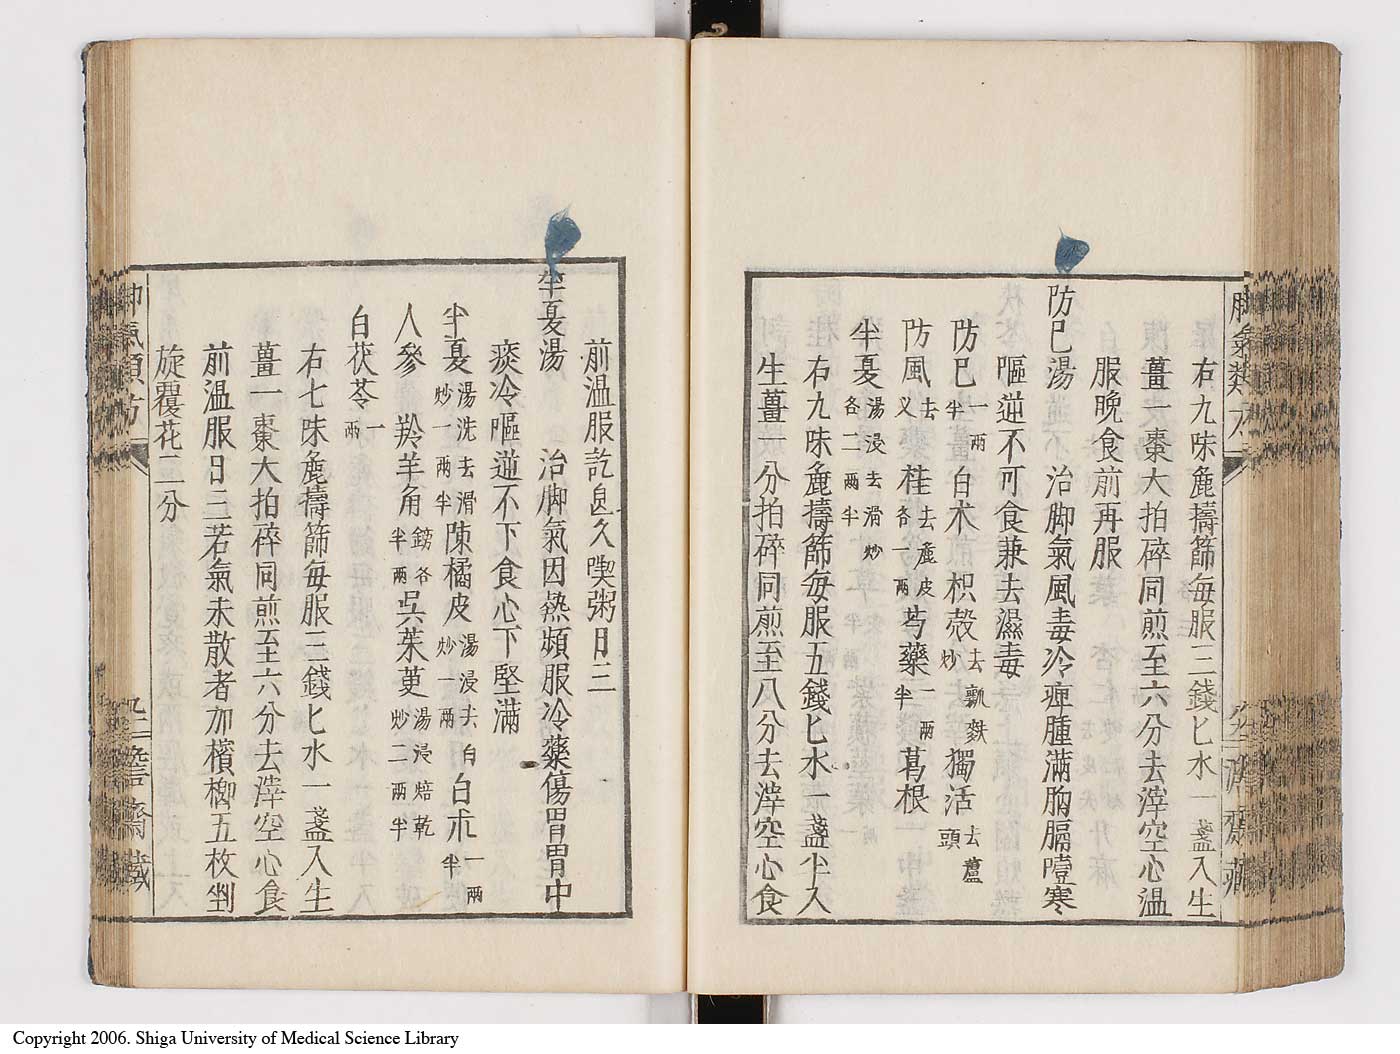 右九味麁擣篩每服三錢匕水一盞入生
薑一棗大拍碎同煎至六分去滓空心溫
服晚食前再服
防巳湯 治脚氣風毒冷痺腫滿胸膈噎寒
嘔逆不可食兼去濕毒
防巳一兩半 白朮 枳殼去瓤麩炒 獨活去蘆頭
防風去叉 桂去麁皮各一兩 芍藥一兩半 葛根
半夏湯浸去滑炒各二兩半
右九味麁擣篩每服五錢匕水一盞半入
生薑一分拍碎同煎至八分去滓空心食
前溫服訖良久喫粥日三
半夏湯 治脚氣因熱頻服冷藥傷胃胃中
痰冷嘔逆不下食心下堅滿
半夏湯洗去滑炒一兩半 陳橘皮湯浸去白炒一兩 白朮一兩半
人參 羚羊角鎊各半兩 吳茱萸湯浸焙乾炒二兩半
白茯苓一兩
右七味麁擣篩每服三錢匕水一盞入生
薑一棗大拍碎同煎至六分去滓空心食
前溫服日三若氣未散者加檳榔五枚剉
旋覆花三分
Copyright 2006. Shiga University of Medical Science Library